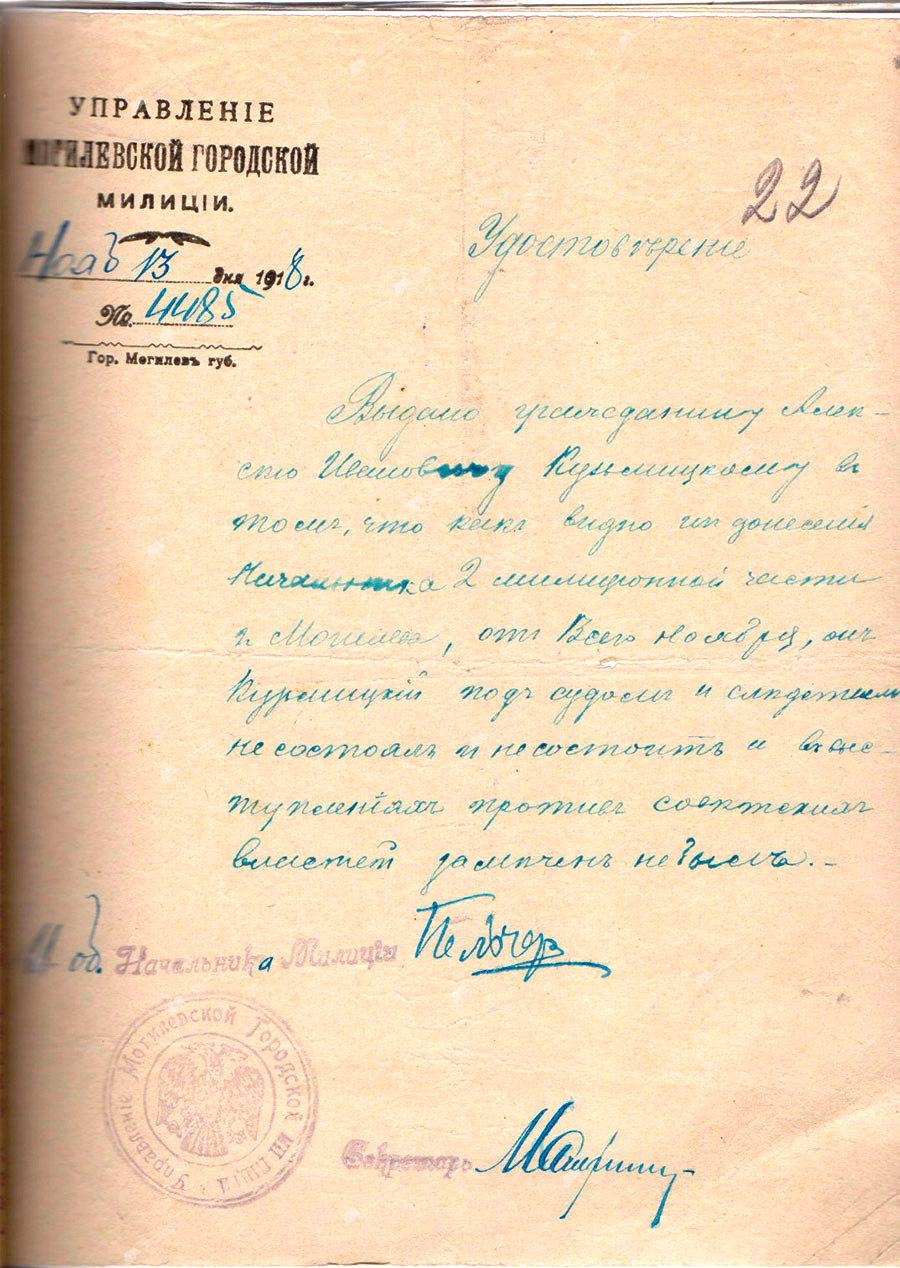 УПРАВЛЕНІЕ
МОГИЛЕВСКОЙ ГОРОДСКОЙ
МИЛИЦІИ.
22
Удостовѣреніе
13 дня 1918 г.
№ 4485
Гор. Могилевъ губ.
Выдано гражданину Алек-
сѣю Ивановичу Кузьмицкому въ
томъ, что какъ видно изъ донесенія
Начальника 2 милиционной части
г. Могилева, отъ сего ноября, онъ
Кузмицкій подъ судомъ и слѣдствіемъ
не состоялъ и не состоитъ и въ выс-
тупленіяхъ противъ советскихъ
властей замѣченъ не былъ.-
И об. Начальника Милиціи
Управленіе Могилевской Городской Милиціи
Секретарь